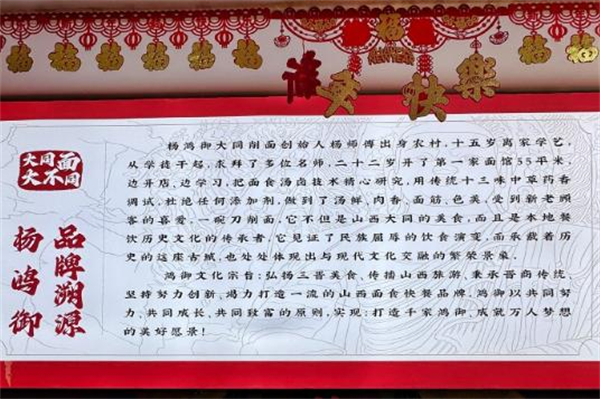 福福福福福福福福福
年快樂
大同面
大不同
品牌溯源
杨鸿御
杨鸿御大同削面创始人杨师傅出身农村,十五岁离家学艺,
从学徒干起,求拜了多位名师,二十二岁开了第一家面馆55平米,
边开店、边学习,把面食汤卤技术精心研究,用传统十三味中草药香
调试,杜绝任何添加剂,做到了汤鲜、肉香、面筋、色美,受到新老顾
客的喜爱,一碗刀削面,它不但是山西大同的美食,而且是本地餐
饮历史文化的传承者,它见证了民族屈辱的饮食演变,而承载着历
史的这座古城,也处处体现出与现代文化交融的繁荣景象。
鸿御文化宗旨:弘扬三晋美食、传播山西旅游、秉承晋商传统、
坚持努力创新、竭力打造一流的山西面食快餐品牌,鸿御以共同努
力、共同成长、共同致富的原则,实现:打造千家鸿御、成就万人梦想
的美好愿景!